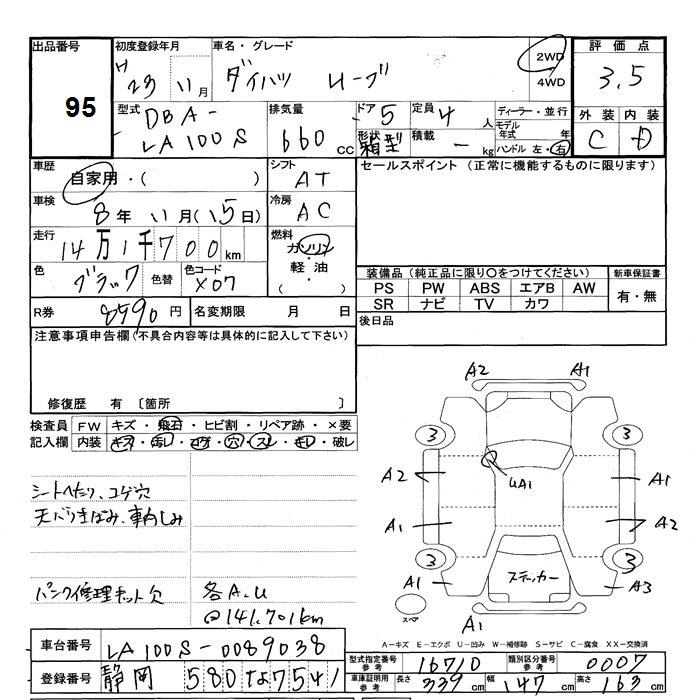 出品番号 95
初度登録年月 H 23 年 11 月
車名・グレード ダイハツ ムーブ
2WD
4WD
評価点 3.5
外装 内装
C D
型式 DBA-
LA100S
排気量 660 CC
ドア 5
形状 箱型
定員 4 人
積載 - kg
ディーラー・並行
モデル年式 年
ハンドル 左・右
車歴 自家用・( )
シフト AT
セールスポイント (正常に機能するものに限ります)
車検 8 年 11 月 (15 日)
冷房 AC
走行 14 万 1 千 700 km
燃料 ガソリン
・
軽油
・
( )
色 ブラック 色替 色コード X07
装備品 (純正品に限り○をつけてください) 新車保証書
PS PW ABS エアB AW
有・無
SR ナビ TV カワ
R券 8590 円 名変期限 月 日
後日品
注意事項申告欄(不具合内容等は具体的に記入して下さい)
修復歴 有 〔箇所
検査員記入欄
FW キズ・飛石・ヒビ割・リペア跡・×要
内装 キズ・汚レ・コゲ・穴・スレ・キレ・破レ
シートへたり、コゲ穴
天バリきばみ、車内しみ
パンク修理キット欠
各A.U
@141,701km
A2 A1
3 3
A2 UA1 A1
A1 A2
3 3
A1 ステッカー A3
スペア
A1
A-キズ E-エクボ U-凹み W-補修跡 S-サビ C-腐食 XX-交換済
車台番号 LA100S-0089038
登録番号 静岡 580 な 7541
型式指定番号 参考 16710 類別区分番号 参考 0007
車庫証明用 参考 長さ 339 cm 幅 147 cm 高さ 163 cm